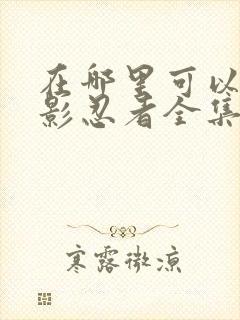 在哪里可以
影忍者全集
寒露微凉